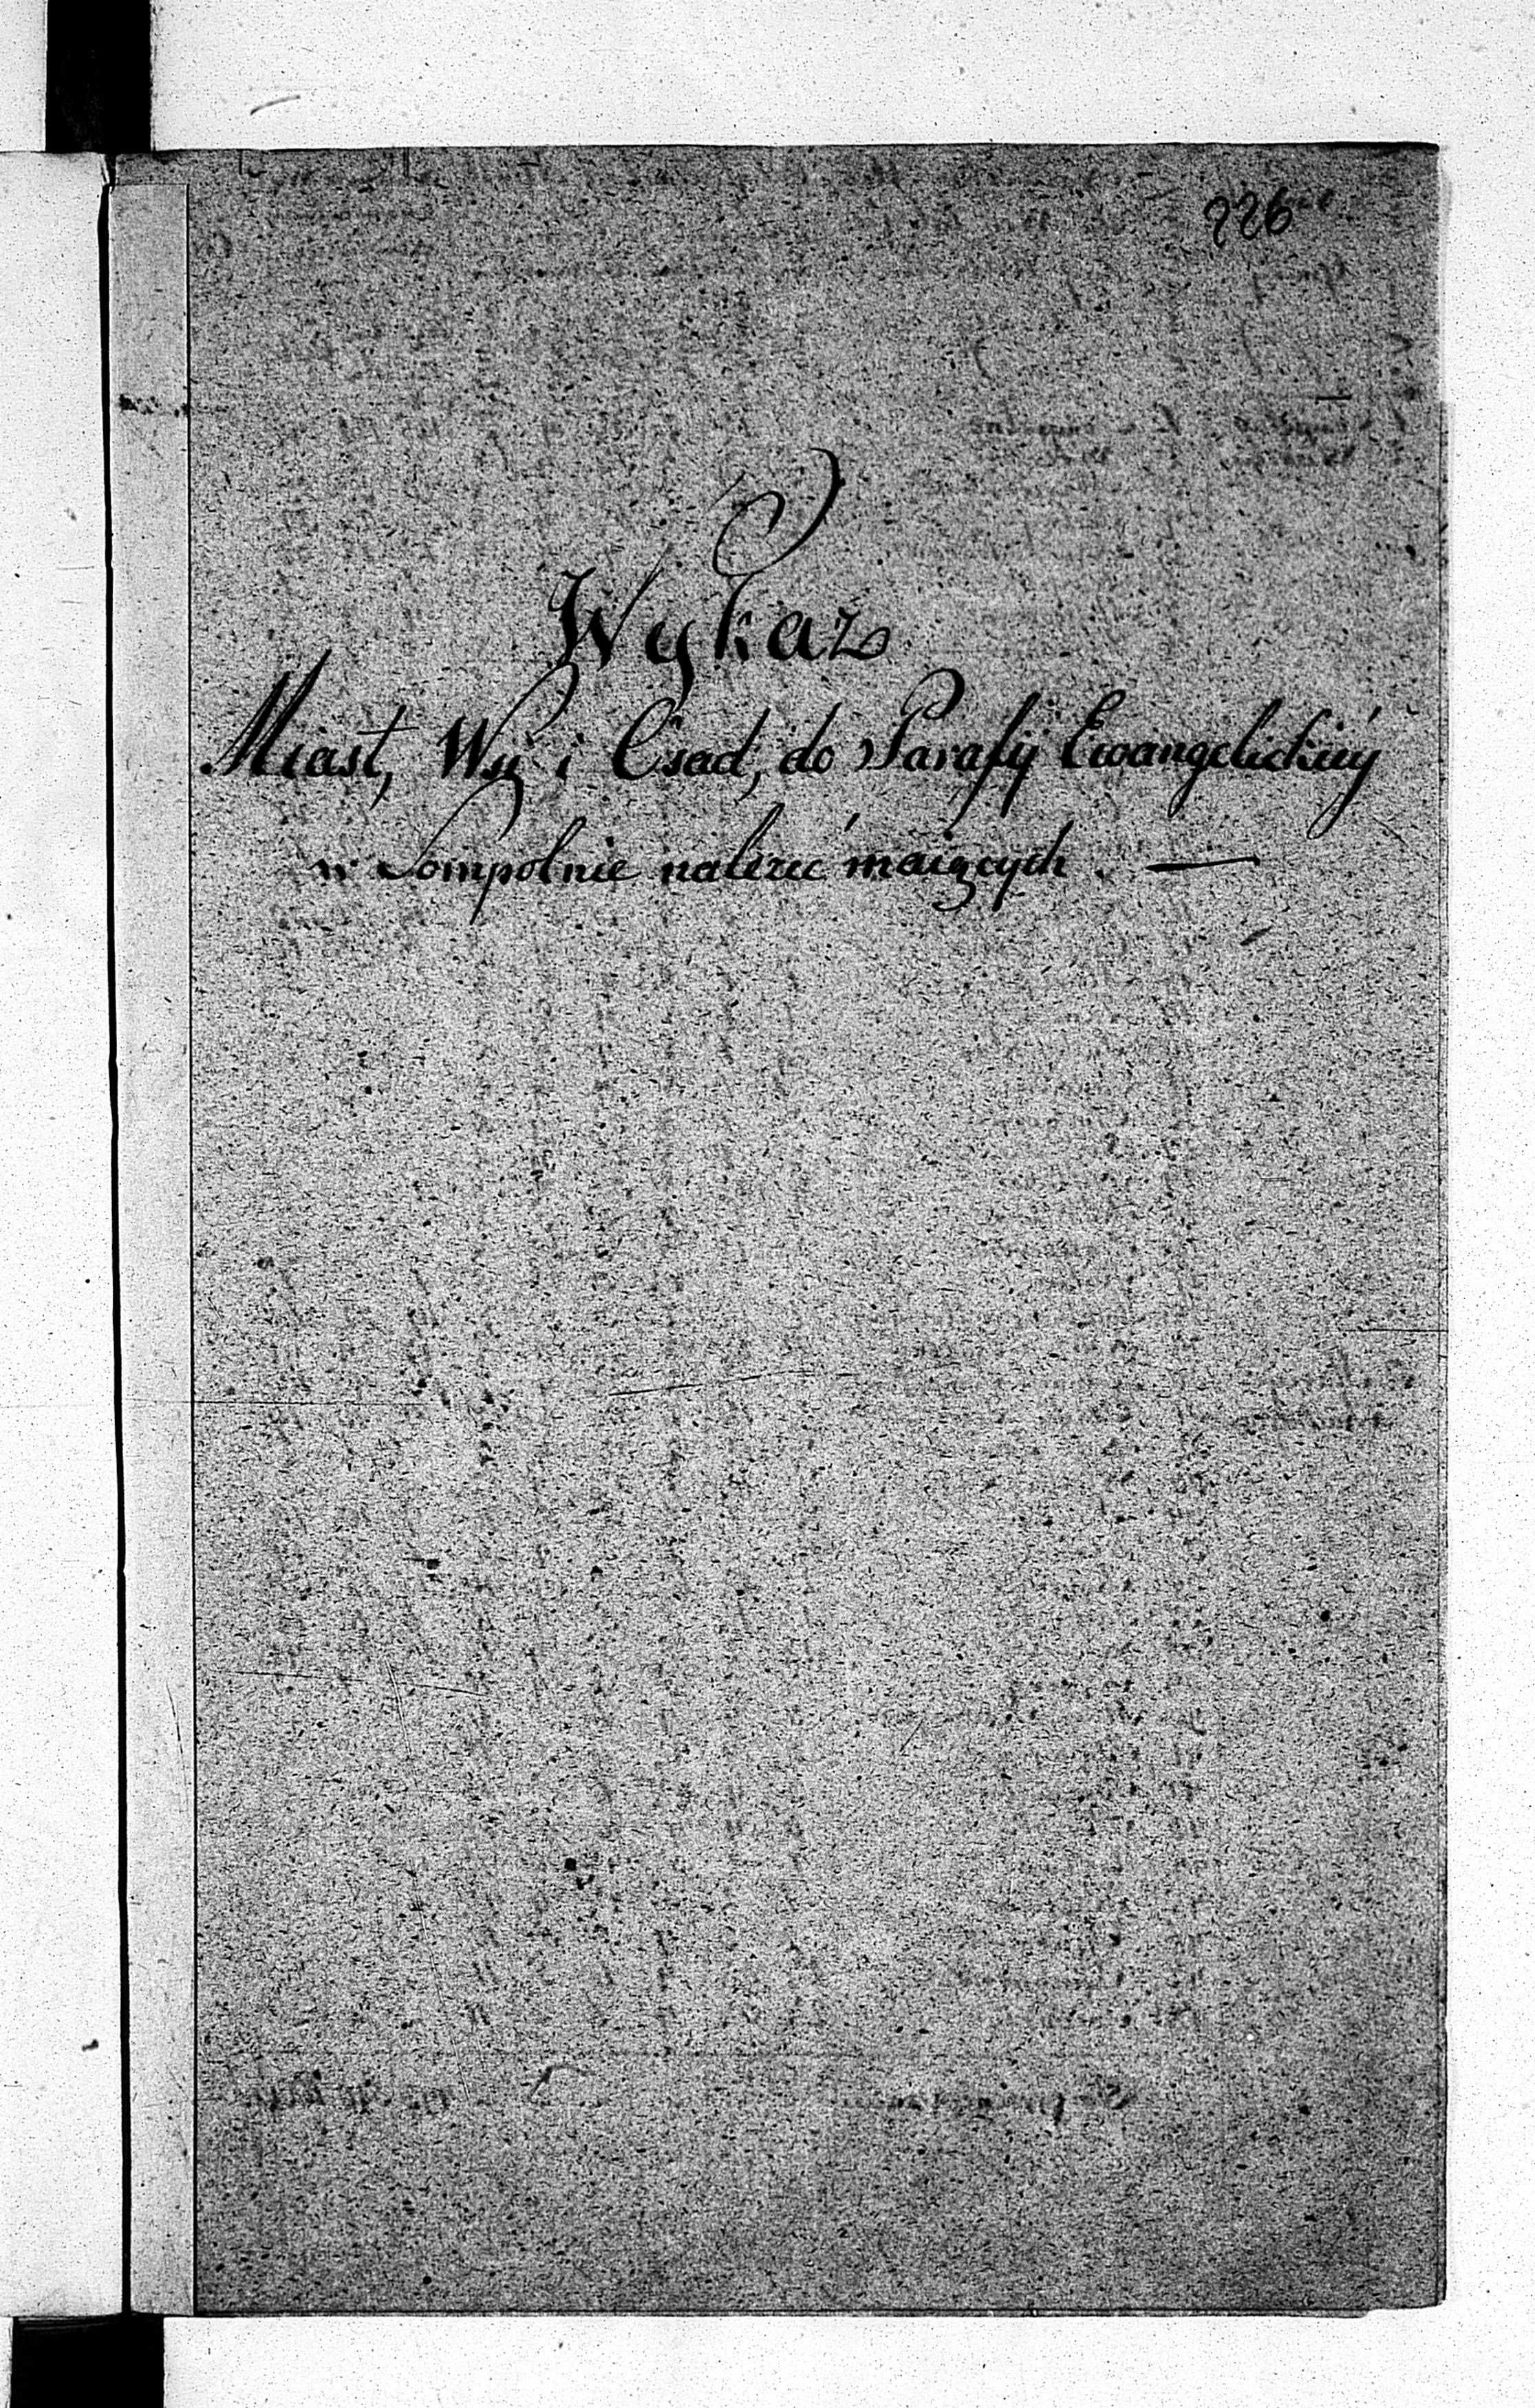 226
Wykaz
Miast, Wsi i Osad, do Parafij Ewangelickiéy
w Sompolnie należeć maiących. —